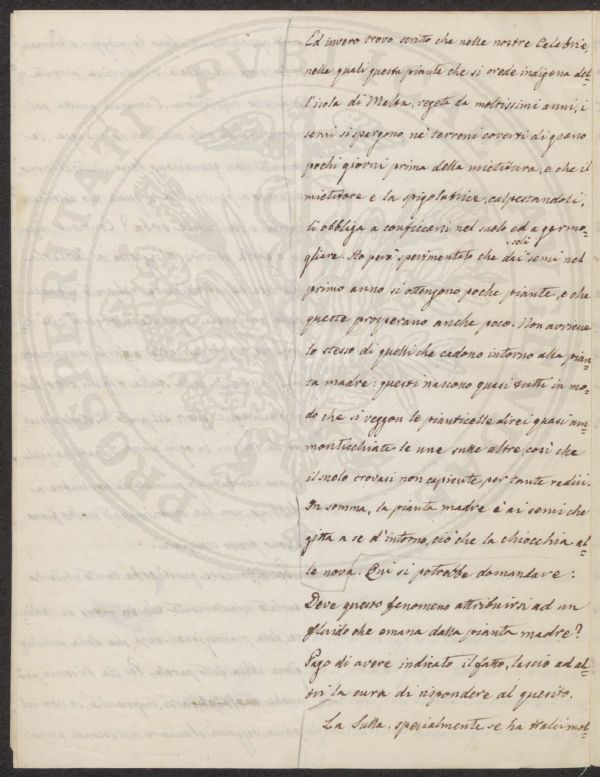 Ed invero trovo scritto che nelle nostre Calabrie,
nelle quali questa pianta che si crede indigena del=
l'isola di Malta, vegeta da moltissimi anni, i
semi si spargono ne' terreni coverti di grano
pochi giorni prima della mietitura, e che il
mietitore e la spigolatrice, calpestandoli,
li obbliga a conficcarsi nel suolo ed a germo=
gliare. Ho però sperimentato che dai soli semi nel
primo anno si ottengono poche piante, e che
queste prosperano anche poco. Non avviene
lo stesso di quelli che cadono intorno alla pian=
ta madre: questi nascono quasi tutti in mo=
do che si veggon le pianticelle direi quasi am=
monticchiate le une sulle altre, così che
il suolo trovasi non capiente per tante radici.
In somma, la pianta madre è ai semi che
gitta a se d'intorno, ciò che la chiocchia al=
le nova. Qui si potrebbe domandare:
Deve questo fenomeno attribuirsi ad un
fluido che emana dalla pianta madre?
Pago di avere indicato il fatto, lascio ad al=
tri la cura di rispondere al quesito.
La Sulla, specialmente se ha tralci mol=
PROSPERITATI PUBLICAE